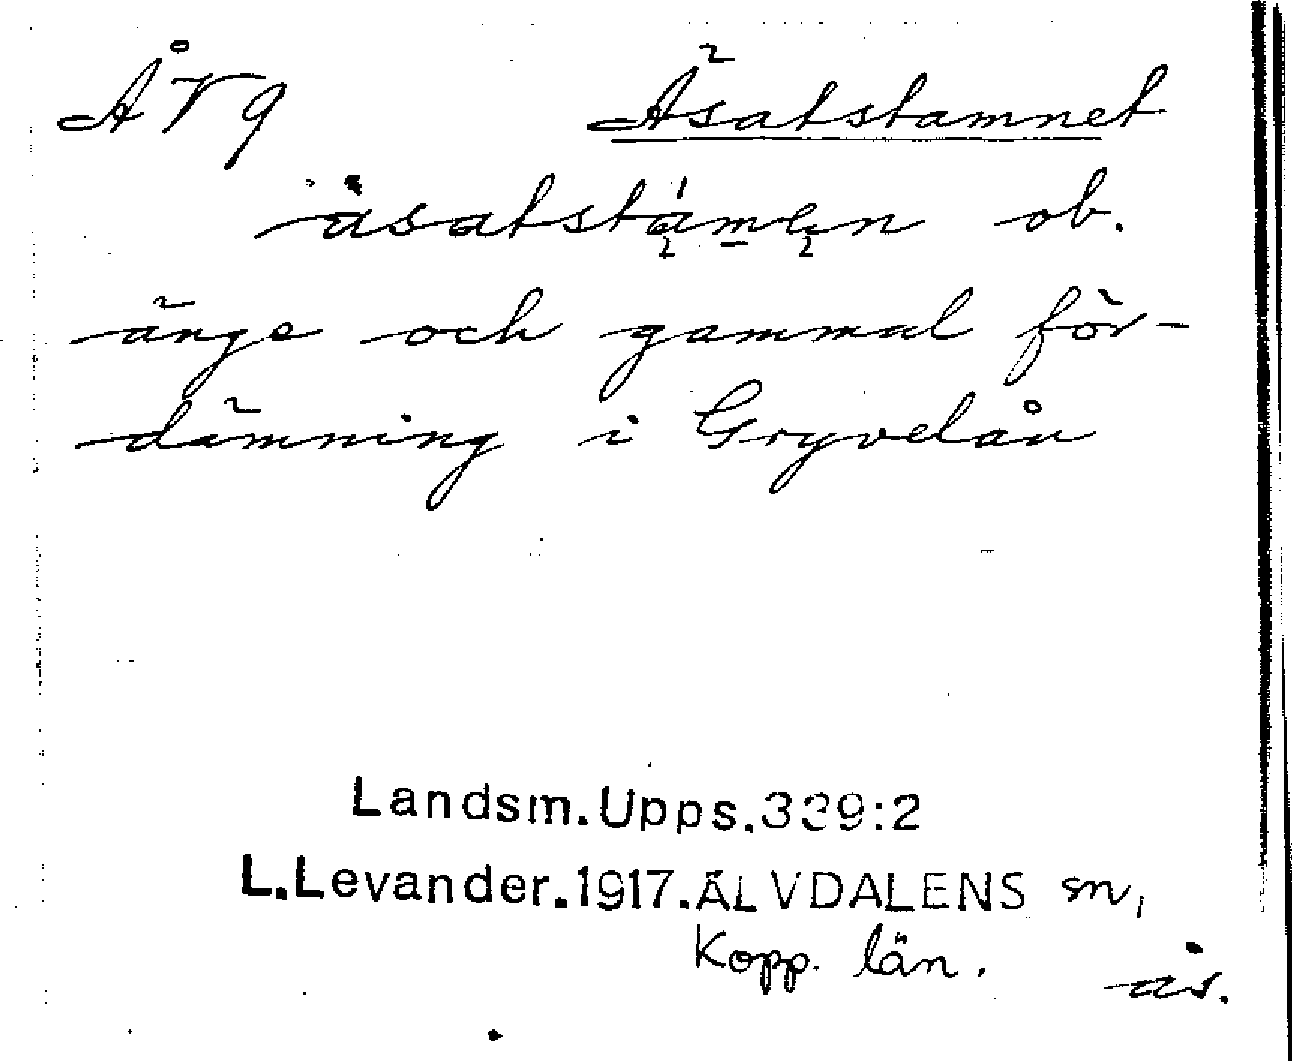 ÅV9 Äsatstamnet
äsatstamen ob.
änge och gammal för-
dämning i Gryvelån
Landsm.Upps.339:2
L.Levander.1917.ÄLVDALENS sn,
Kopp. län.
ås.